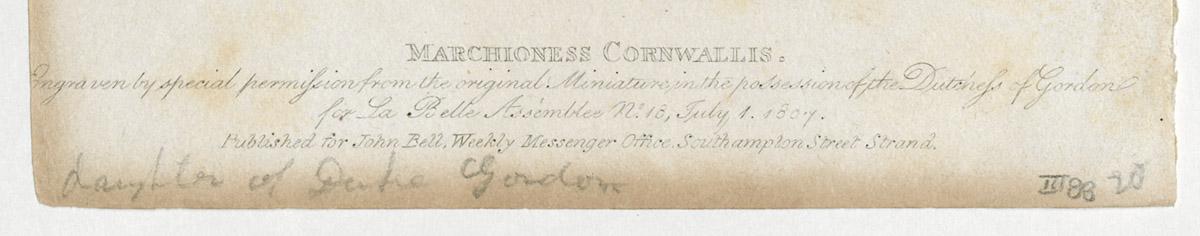 MARCHIONESS CORNWALLIS.
Engraven by special permission from the original Miniature, in the possession of the Dutchess of Gordon
for La Belle Assemblee No. 18, July 1. 1807.
Published for John Bell, Weekly Messenger Office, Southampton Street Strand.
daughter of Duke Gordon
III 88